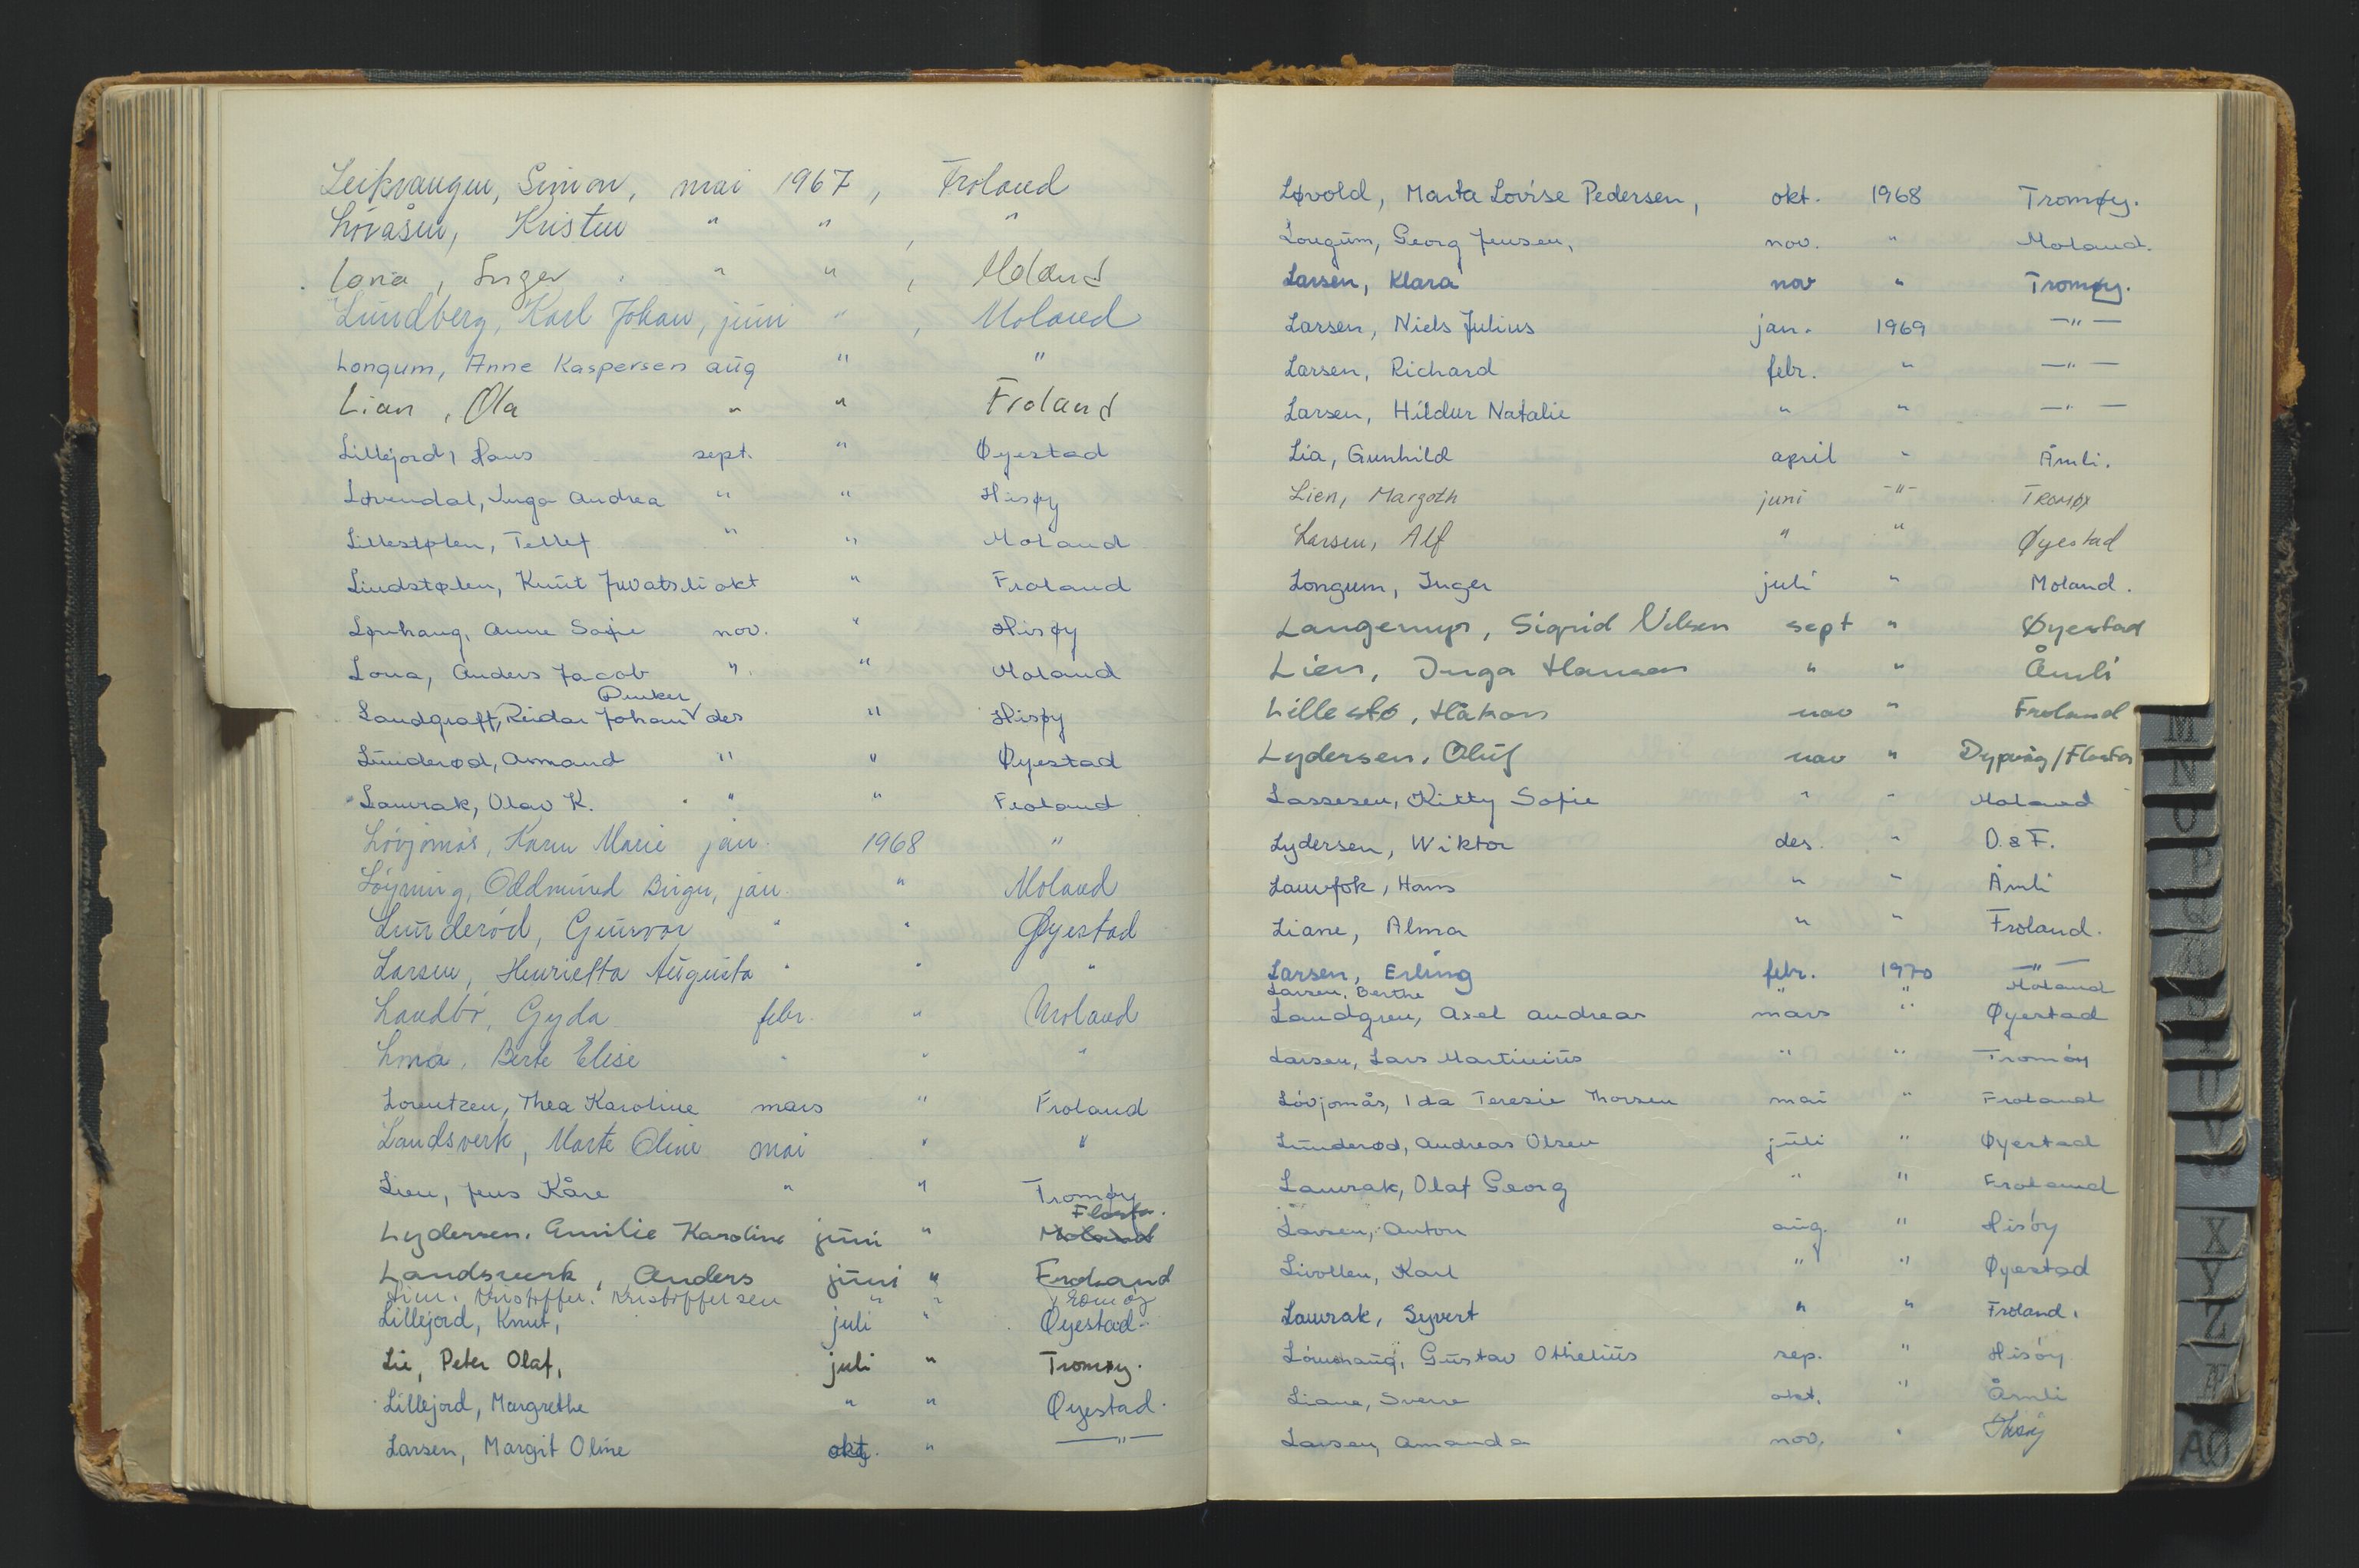 Leikvangen, Simon, mai 1967, Froland
Løvåsen, Kristen " " , "
Lona, Inger . " " , Moland
Lundberg, Karl Johan, juni " , Moland
Longum, Anne Kaspersen aug " "
Lian, Ola " " Froland
Lillejord, Hans sept. " Øyestad
Løvendal, Inga Andrea " " Hisøy
Lillestølen, Tellef " " Moland
Lindstølen, Knut okt " Froland
Lønhaug, Anne Sofie nov. " Hisøy
Lona, Anders Jacob " " Moland
Dunker
Landgraff, Reidar Johan V des " Hisøy
Lunderød, Osmand " " Øyestad
Laurak, Olav K. " " Froland
Løvjomås, Karen Marie jan. 1968 "
Løyning, Oddmund Birger, jan. " Moland
Lunderød, Gunvor " " Øyestad
Larsen, Henrietta Augusta " " "
Landbø, Gyda febr. " Moland
Lona, Berte Elise " " "
Lorentzen, Thea Karoline mars " Froland
Landsverk, Marte Oline mai " "
Lien, Jens Kåre " " Tromøy
Flosta.
Lydersen, Emilie Karoline juni " Moland
Landsverk, Anders juni " Froland
Lien, Kristoffer Kristoffersen " " Tromøy
Lillejord, Knut, juli " Øyestad.
Lie, Peter Olaf, juli " Tromøy.
Lillejord, Margrethe " " Øyestad.
Larsen, Margit Oline okt. " —"—
Løvold, Marta Lovise Pedersen, okt. 1968 Tromøy.
Longum, Georg Jensen, nov. " Moland.
Larsen, Klara nov " Tromøy.
Larsen, Niels Julius jan. 1969 —"—
Larsen, Richard febr. " —"—
Larsen, Hildur Natalie " " —"—
Lia, Gunhild april " Åmli.
Lien, Margoth juni -"- Tromøy
Larsen, Alf " " Øyestad
Longum, Inger juli " Moland.
Langemyr, Sigrid Nilsen sept " Øyestad
Lien, Inga Hansen " " Åmli
Lillestø, Håkon nov " Froland
Lydersen, Oluf nov " Dypvåg/Flosta
Lassesen, Kitty Sofie " " Moland
Lydersen, Wiktor des. " D. & F.
Lauvfok, Hans " " Åmli
Liane, Alma " " Froland.
Larsen, Erling febr. 1970 —"—
Larsen, Berthe " " Moland
Landgren, Axel Andreas mars " Øyestad
Larsen, Lars Martinius " " Tromöy
Lövjomås, Ida Teresie Thorsen mai " Froland
Lunderød, Andreas Olsen juli " Øyestad
Laurak, Olaf Georg " " Froland
Larsen, Anton aug. " Hisöy
Livollen, Karl " " Øyestad
Laurak, Syvert " " Froland.
Gustav Othelius sep. " Hisöy
Liane, Sverre okt. " Åmli
Larsen, Amanda nov. " Hisøy
M
N
O
P
Q
R
S
T
U
V
X
Y
Z
Æ
AØ